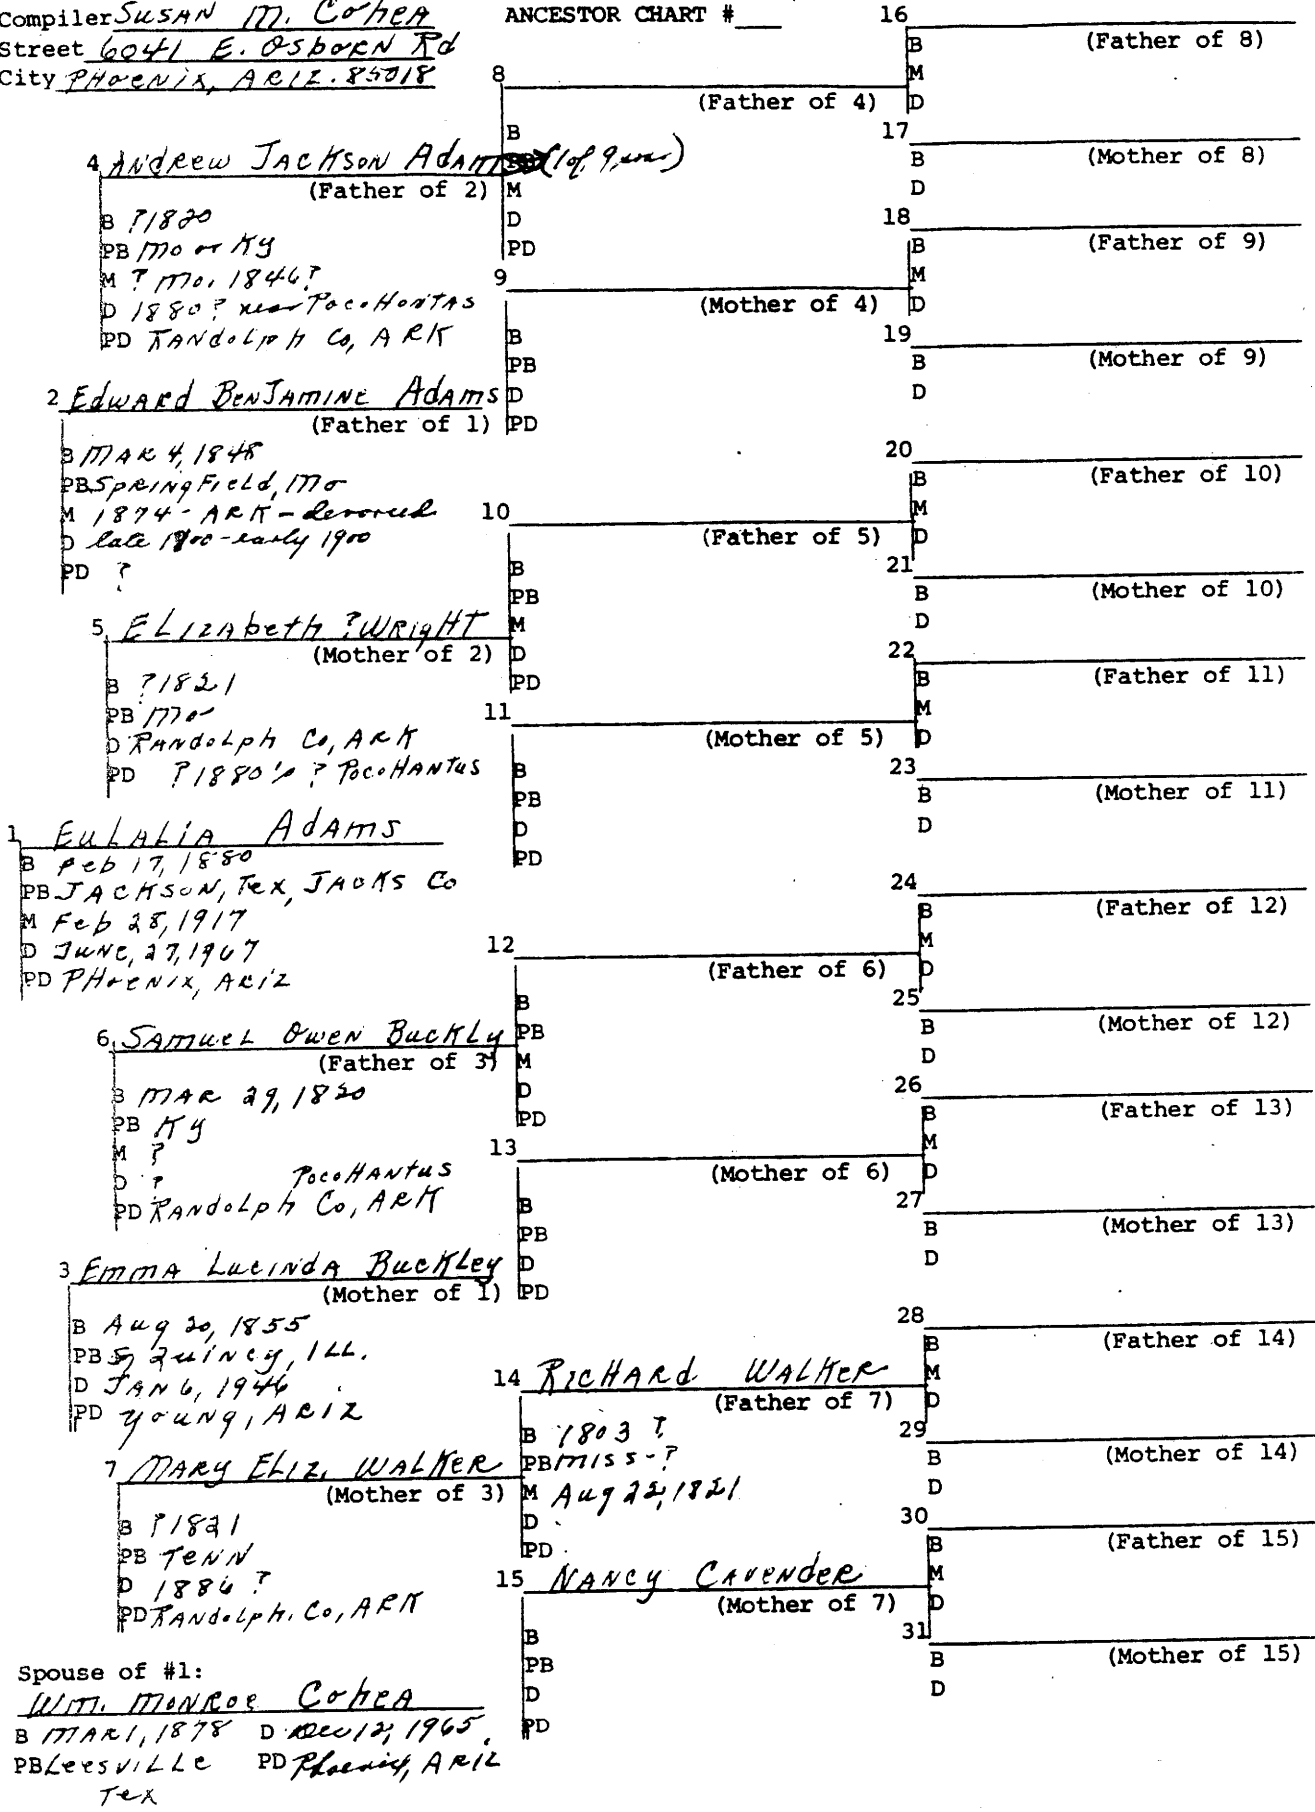 Compiler Susan M. Cohea
Street 6041 E. Osborn Rd
City Phoenix, Ariz. 85018
ANCESTOR CHART #
1 Eulalia Adams
B Feb 17, 1880
PB Jackson, Tex, Jacks Co
M Feb 28, 1917
D June, 27, 1967
PD Phoenix, Ariz
2 Edward Benjamine Adams
(Father of 1)
B Mar 4, 1848
PB Springfield, Mo
M 1874 - Ark - devorced
D late 1800 - early 1900
PD ?
3 Emma Lucinda Buckley
(Mother of 1)
B Aug 20, 1855
PB Quincy, Ill.
D Jan 6, 1946
PD Young, Ariz
4 Andrew Jackson Adams (1 of 9, )
(Father of 2)
B ?1820
PB Mo or Ky
M ? Mo. 1846?
D 1880? near Pocohontas
PD Randolph Co, Ark
5 Elizabeth ?Wright
(Mother of 2)
B ?1821
PB Mo
D Randolph Co, Ark
PD ?1880's ? Pocohantus
6 Samuel Owen Buckly
(Father of 3)
B Mar 29, 1820
PB Ky
M ?
D ? Pocohantus
PD Randolph Co, Ark
7 Mary Eliz. Walker
(Mother of 3)
B ?1821
PB Tenn
D 1886 ?
PD Randolph. Co, Ark
Spouse of #1:
Wm. Monroe Cohea
B Mar 1, 1878 D Dec 12, 1965
PB Leesville PD Phoenix, Ariz
Tex
8
(Father of 4)
B
M
D
PD
9
(Mother of 4)
B
PB
D
PD
10
(Father of 5)
B
PB
M
D
PD
11
(Mother of 5)
B
PB
D
PD
12
(Father of 6)
B
PB
M
D
PD
13
(Mother of 6)
B
PB
D
PD
14 Richard Walker
(Father of 7)
B 1803 ?
PB Miss - ?
M Aug 22, 1821
D
PD
15 Nancy Cavender
(Mother of 7)
B
PB
D
PD
16
(Father of 8)
B
M
D
17
(Mother of 8)
B
D
18
(Father of 9)
B
M
D
19
(Mother of 9)
B
D
20
(Father of 10)
B
M
D
21
(Mother of 10)
B
D
22
(Father of 11)
B
M
D
23
(Mother of 11)
B
D
24
(Father of 12)
B
M
D
25
(Mother of 12)
B
D
26
(Father of 13)
B
M
D
27
(Mother of 13)
B
D
28
(Father of 14)
B
M
D
29
(Mother of 14)
B
D
30
(Father of 15)
B
M
D
31
(Mother of 15)
B
D